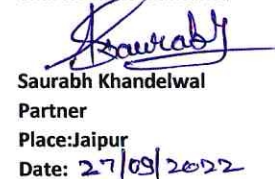 Saurabh
Saurabh Khandelwal
Partner
Place:Jaipur
Date: 27/09/2022